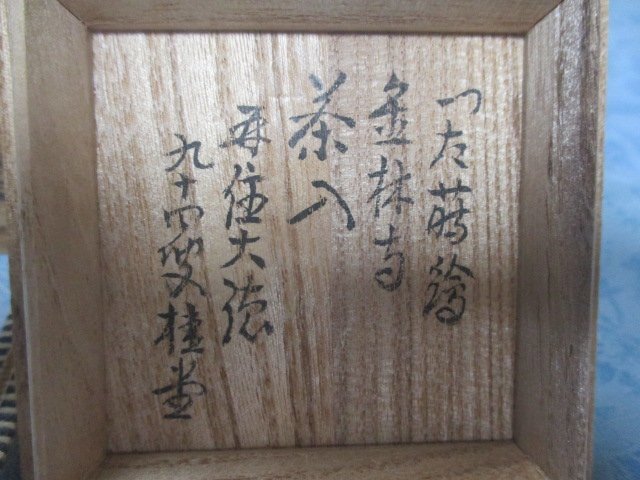 一石蒔絵
金林寺
茶入
再住大徳
九十四叟桂堂